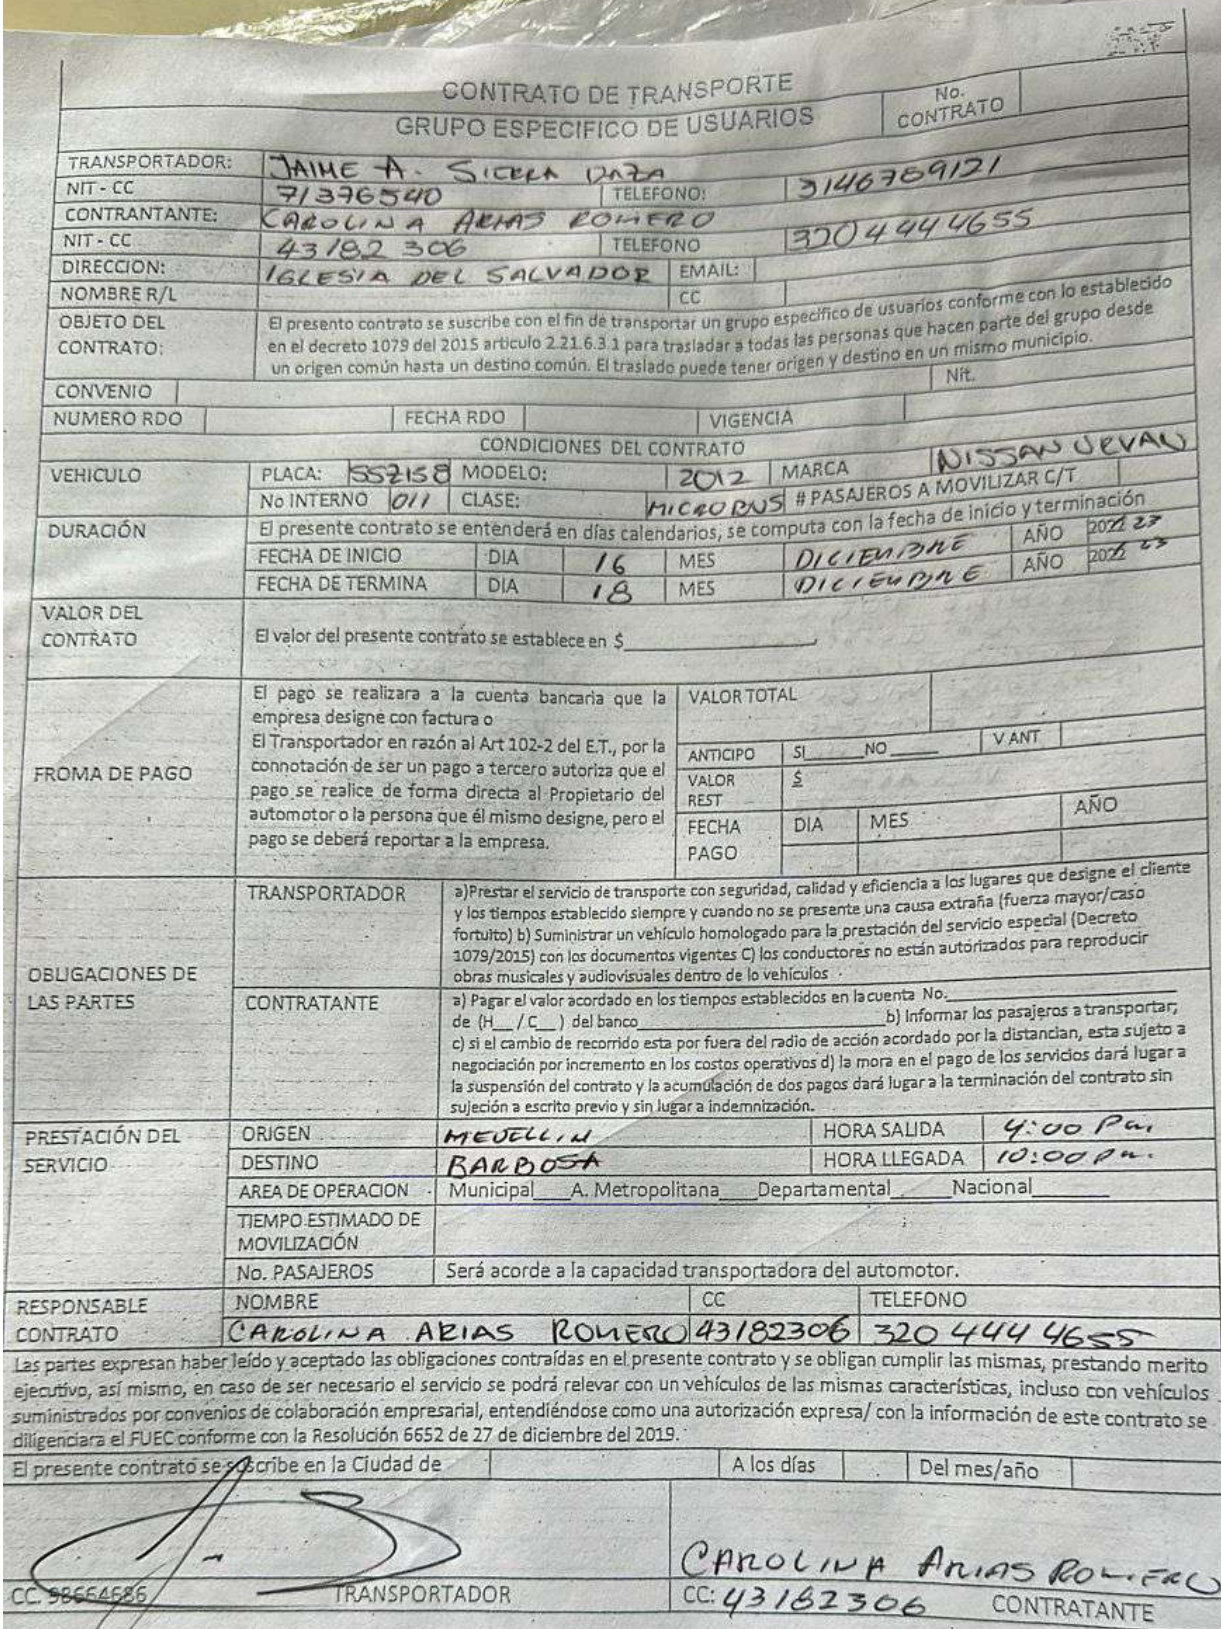 CONTRATO DE TRANSPORTE
GRUPO ESPECIFICO DE USUARIOS
No. CONTRATO
TRANSPORTADOR: JAIME A. SIERRA DAZA
NIT - CC 71376540 TELEFONO: 3146789121
CONTRANTANTE: CAROLINA ARIAS ROMERO
NIT - CC 43182306 TELEFONO 3204444655
DIRECCION: IGLESIA DEL SALVADOR EMAIL:
NOMBRE R/L CC
OBJETO DEL CONTRATO:
El presento contrato se suscribe con el fin de transportar un grupo especifico de usuarios conforme con lo establecido
en el decreto 1079 del 2015 articulo 2.21.6.3.1 para trasladar a todas las personas que hacen parte del grupo desde
un origen común hasta un destino común. El traslado puede tener origen y destino en un mismo municipio.
CONVENIO Nit.
NUMERO RDO FECHA RDO VIGENCIA
CONDICIONES DEL CONTRATO
VEHICULO PLACA: MODELO: 2012 MARCA NISSAN URVAN
No INTERNO 011 CLASE: MICROBUS # PASAJEROS A MOVILIZAR C/T
DURACIÓN El presente contrato se entenderá en días calendarios, se computa con la fecha de inicio y terminación
FECHA DE INICIO DIA 16 MES DICIEMBRE AÑO 23
FECHA DE TERMINA DIA 18 MES DICIEMBRE AÑO 23
VALOR DEL CONTRATO
El valor del presente contrato se establece en $
FROMA DE PAGO
El pago se realizara a la cuenta bancaria que la
empresa designe con factura o
El Transportador en razón al Art 102-2 del E.T., por la
connotación de ser un pago a tercero autoriza que el
pago se realice de forma directa al Propietario del
automotor o la persona que él mismo designe, pero el
pago se deberá reportar a la empresa.
VALOR TOTAL
ANTICIPO SI NO V ANT
VALOR REST $
FECHA PAGO DIA MES AÑO
OBLIGACIONES DE LAS PARTES
TRANSPORTADOR
a)Prestar el servicio de transporte con seguridad, calidad y eficiencia a los lugares que designe el cliente
y los tiempos establecido siempre y cuando no se presente una causa extraña (fuerza mayor/caso
fortuito) b) Suministrar un vehículo homologado para la prestación del servicio especial (Decreto
1079/2015) con los documentos vigentes C) los conductores no están autorizados para reproducir
obras musicales y audiovisuales dentro de lo vehículos
CONTRATANTE
a) Pagar el valor acordado en los tiempos establecidos en la cuenta No.
de (H__ / C__ ) del banco b) Informar los pasajeros a transportar;
c) si el cambio de recorrido esta por fuera del radio de acción acordado por la distancian, esta sujeto a
negociación por incremento en los costos operativos d) la mora en el pago de los servicios dará lugar a
la suspensión del contrato y la acumulación de dos pagos dará lugar a la terminación del contrato sin
sujeción a escrito previo y sin lugar a indemnización.
PRESTACIÓN DEL SERVICIO
ORIGEN MEDELLIN HORA SALIDA 4:00 Pm.
DESTINO BARBOSA HORA LLEGADA 10:00 pm.
AREA DE OPERACION Municipal____A. Metropolitana____Departamental_____Nacional_______
TIEMPO ESTIMADO DE MOVILIZACIÓN
No. PASAJEROS Será acorde a la capacidad transportadora del automotor.
RESPONSABLE CONTRATO
NOMBRE CC TELEFONO
CAROLINA ARIAS ROMERO 43182306 320 444 4655
Las partes expresan haber leído y aceptado las obligaciones contraídas en el presente contrato y se obligan cumplir las mismas, prestando merito
ejecutivo, así mismo, en caso de ser necesario el servicio se podrá relevar con un vehículos de las mismas características, incluso con vehículos
suministrados por convenios de colaboración empresarial, entendiéndose como una autorización expresa/ con la información de este contrato se
diligenciara el FUEC conforme con la Resolución 6652 de 27 de diciembre del 2019.
El presente contrato se suscribe en la Ciudad de A los días Del mes/año
CAROLINA ARIAS ROMERO
CC. 98664686 TRANSPORTADOR CC: 43182306 CONTRATANTE